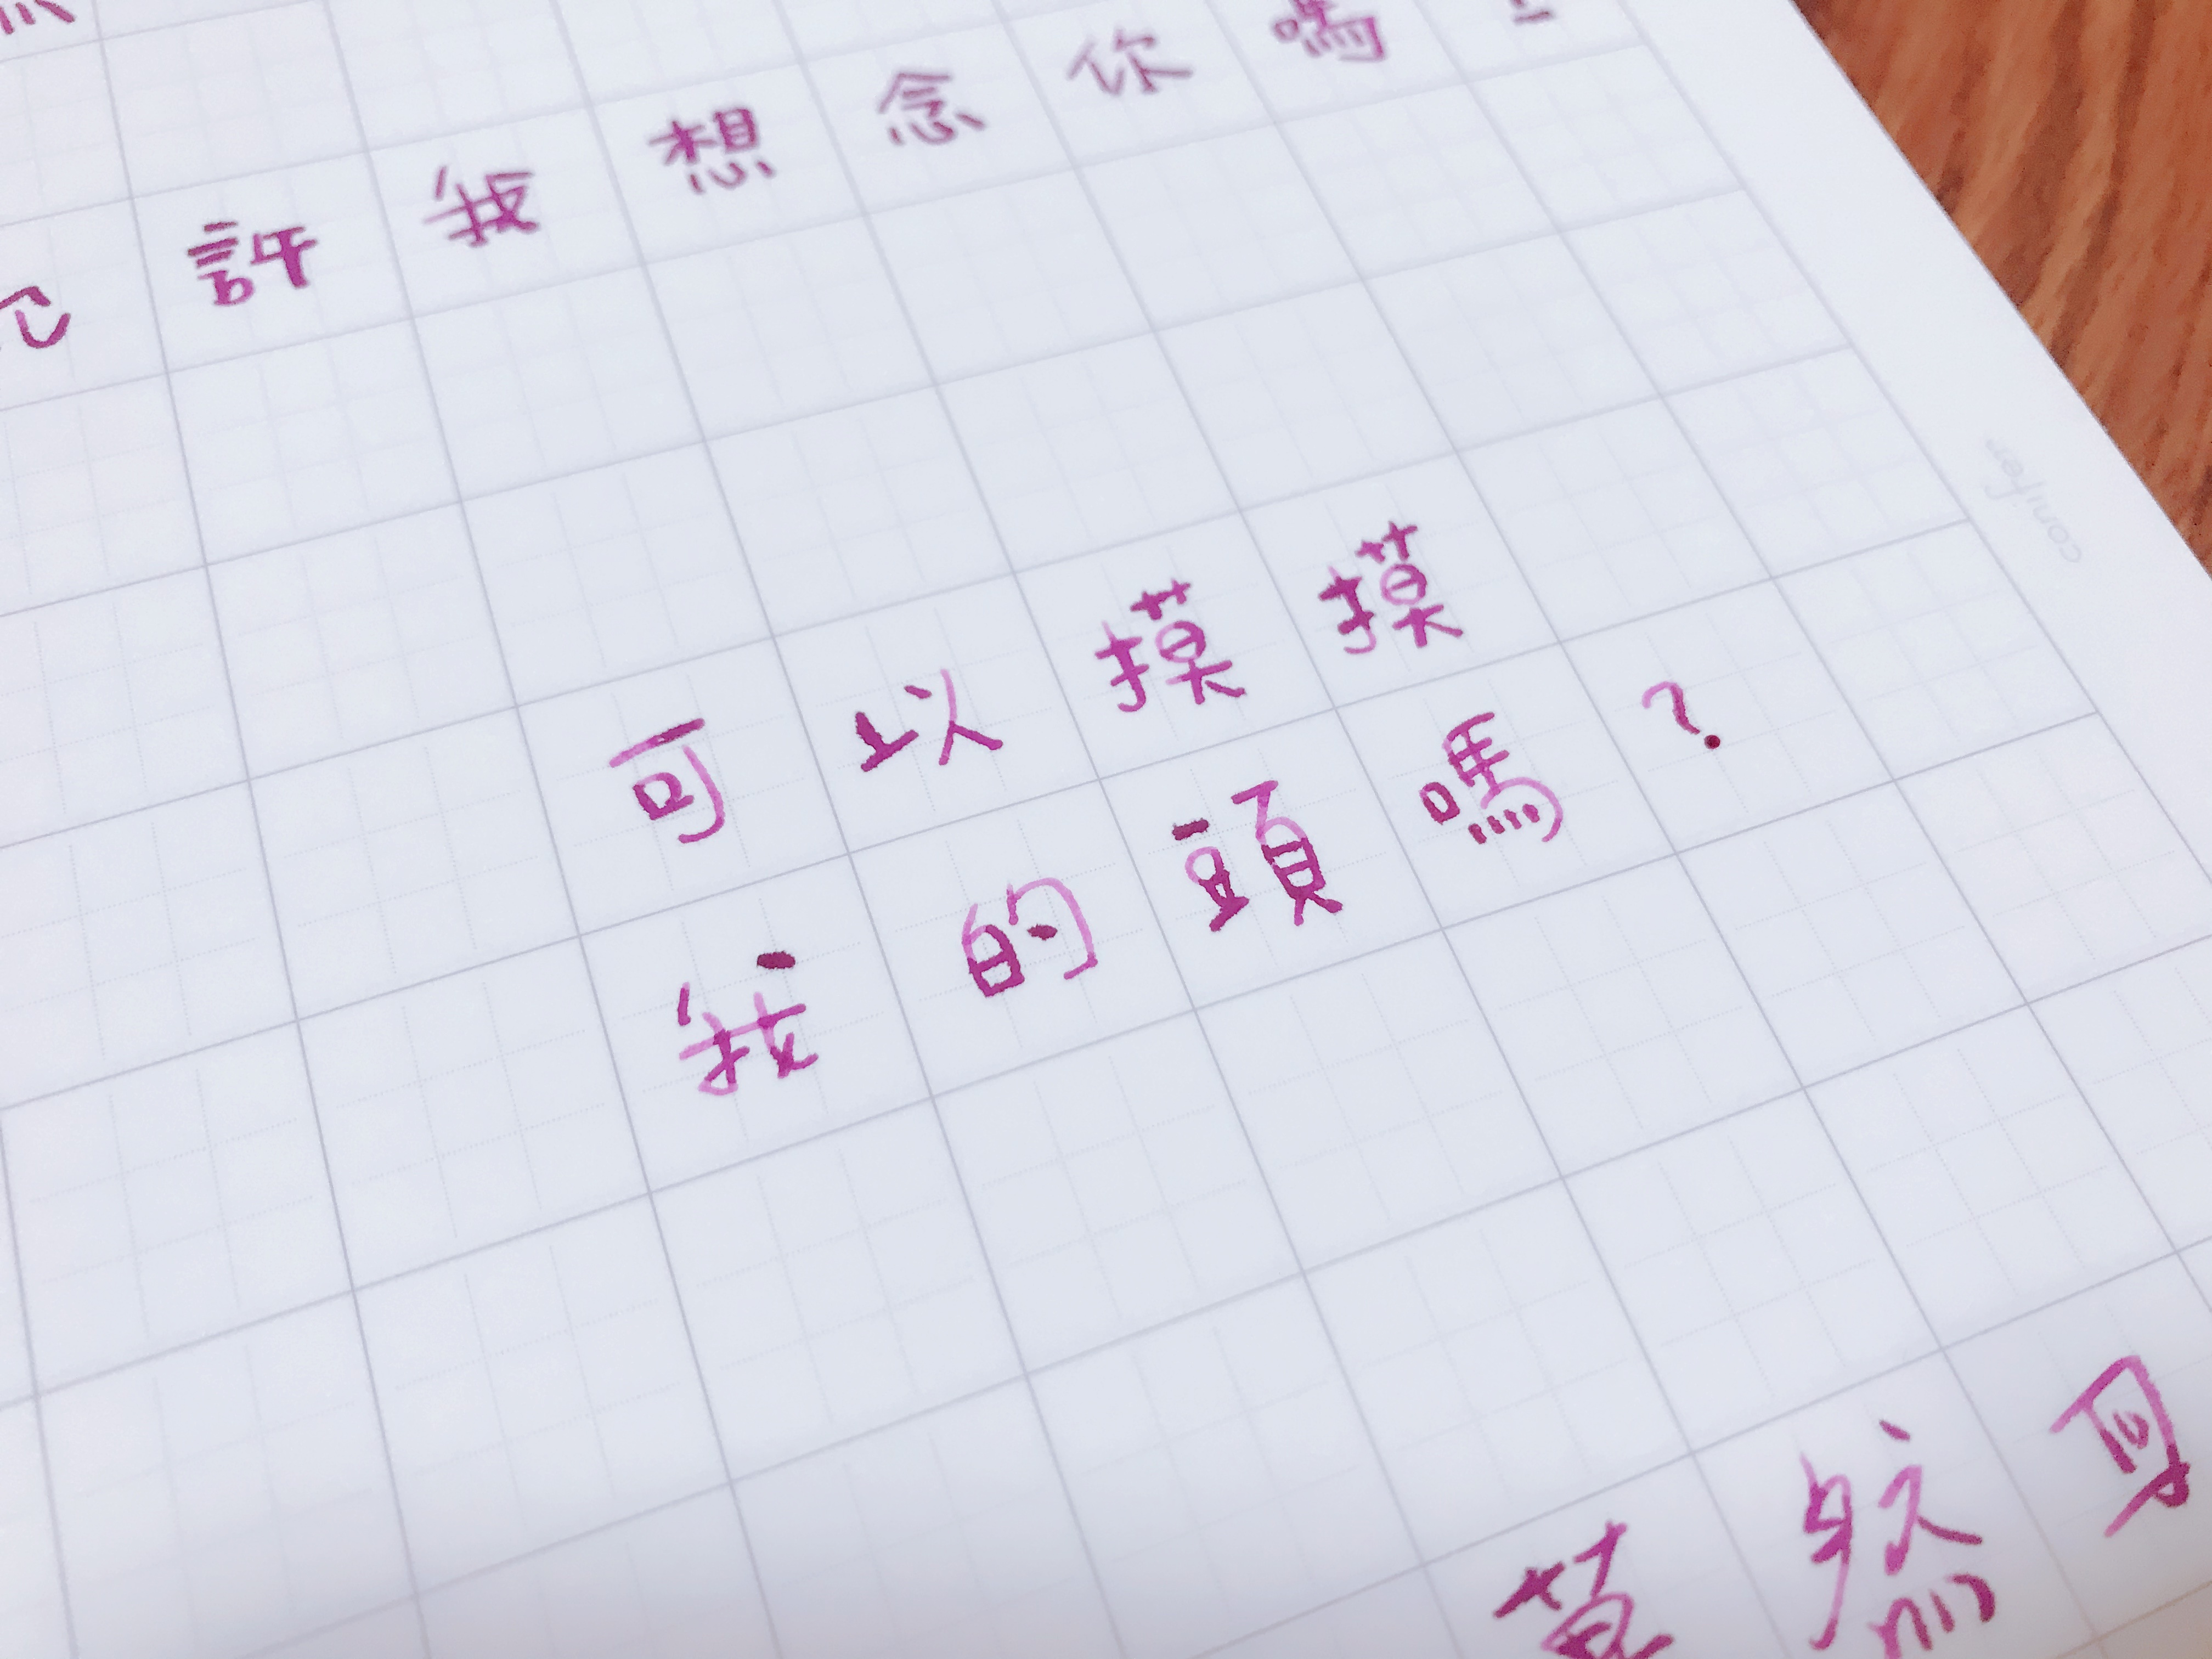 許我想念你嗎?
可以摸摸
我的頭嗎?
驀然
conifer